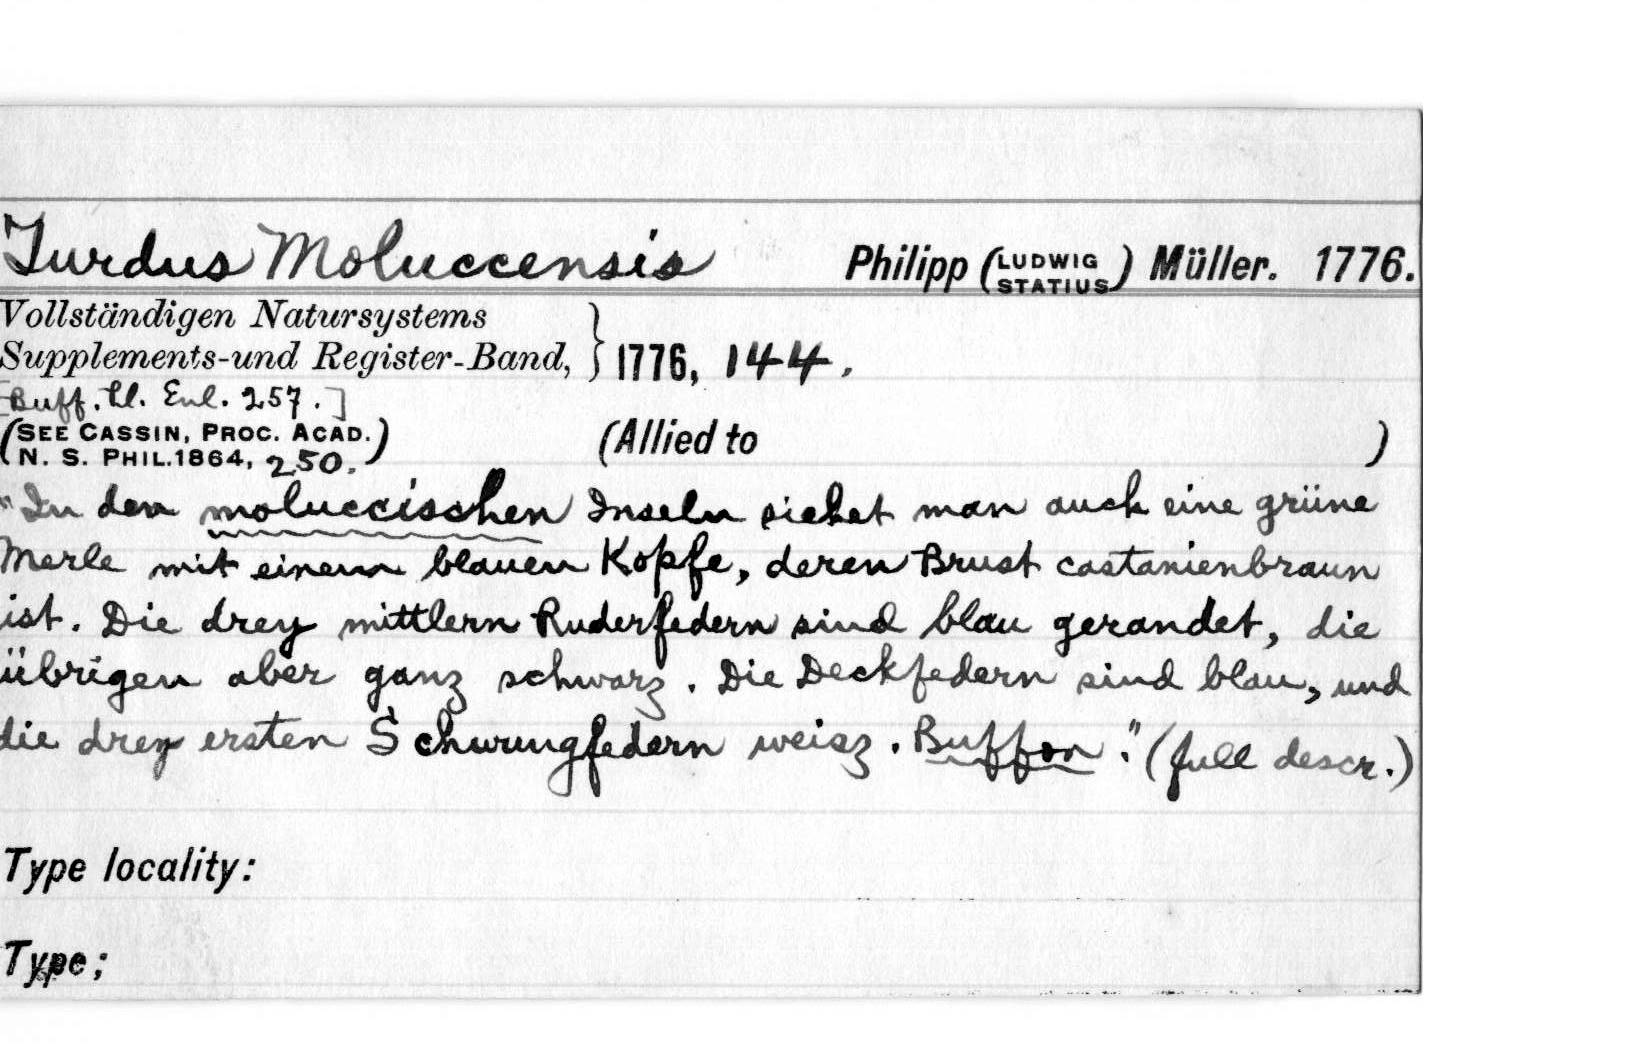 Turdus Moluccensis Philipp (LUDWIG STATIUS) Müller. 1776.
Vollständigen Natursystems
Supplements-und Register-Band, } 1776, 144.
[Buff. Pl. Enl. 257.]
(SEE CASSIN, PROC. ACAD. (Allied to )
N. S. PHIL. 1864, 250.)
"In den moluccischen Inseln siehet man auch eine grüne
Merle mit einem blauen Kopfe, deren Brust castanienbraun
ist. Die drey mittlern Ruderfedern sind blau gerandet, die
übrigen aber ganz schwarz. Die Deckfedern sind blau, und
die drey ersten Schwungfedern weisz. Buffon." (full descr.)
Type locality:
Type;